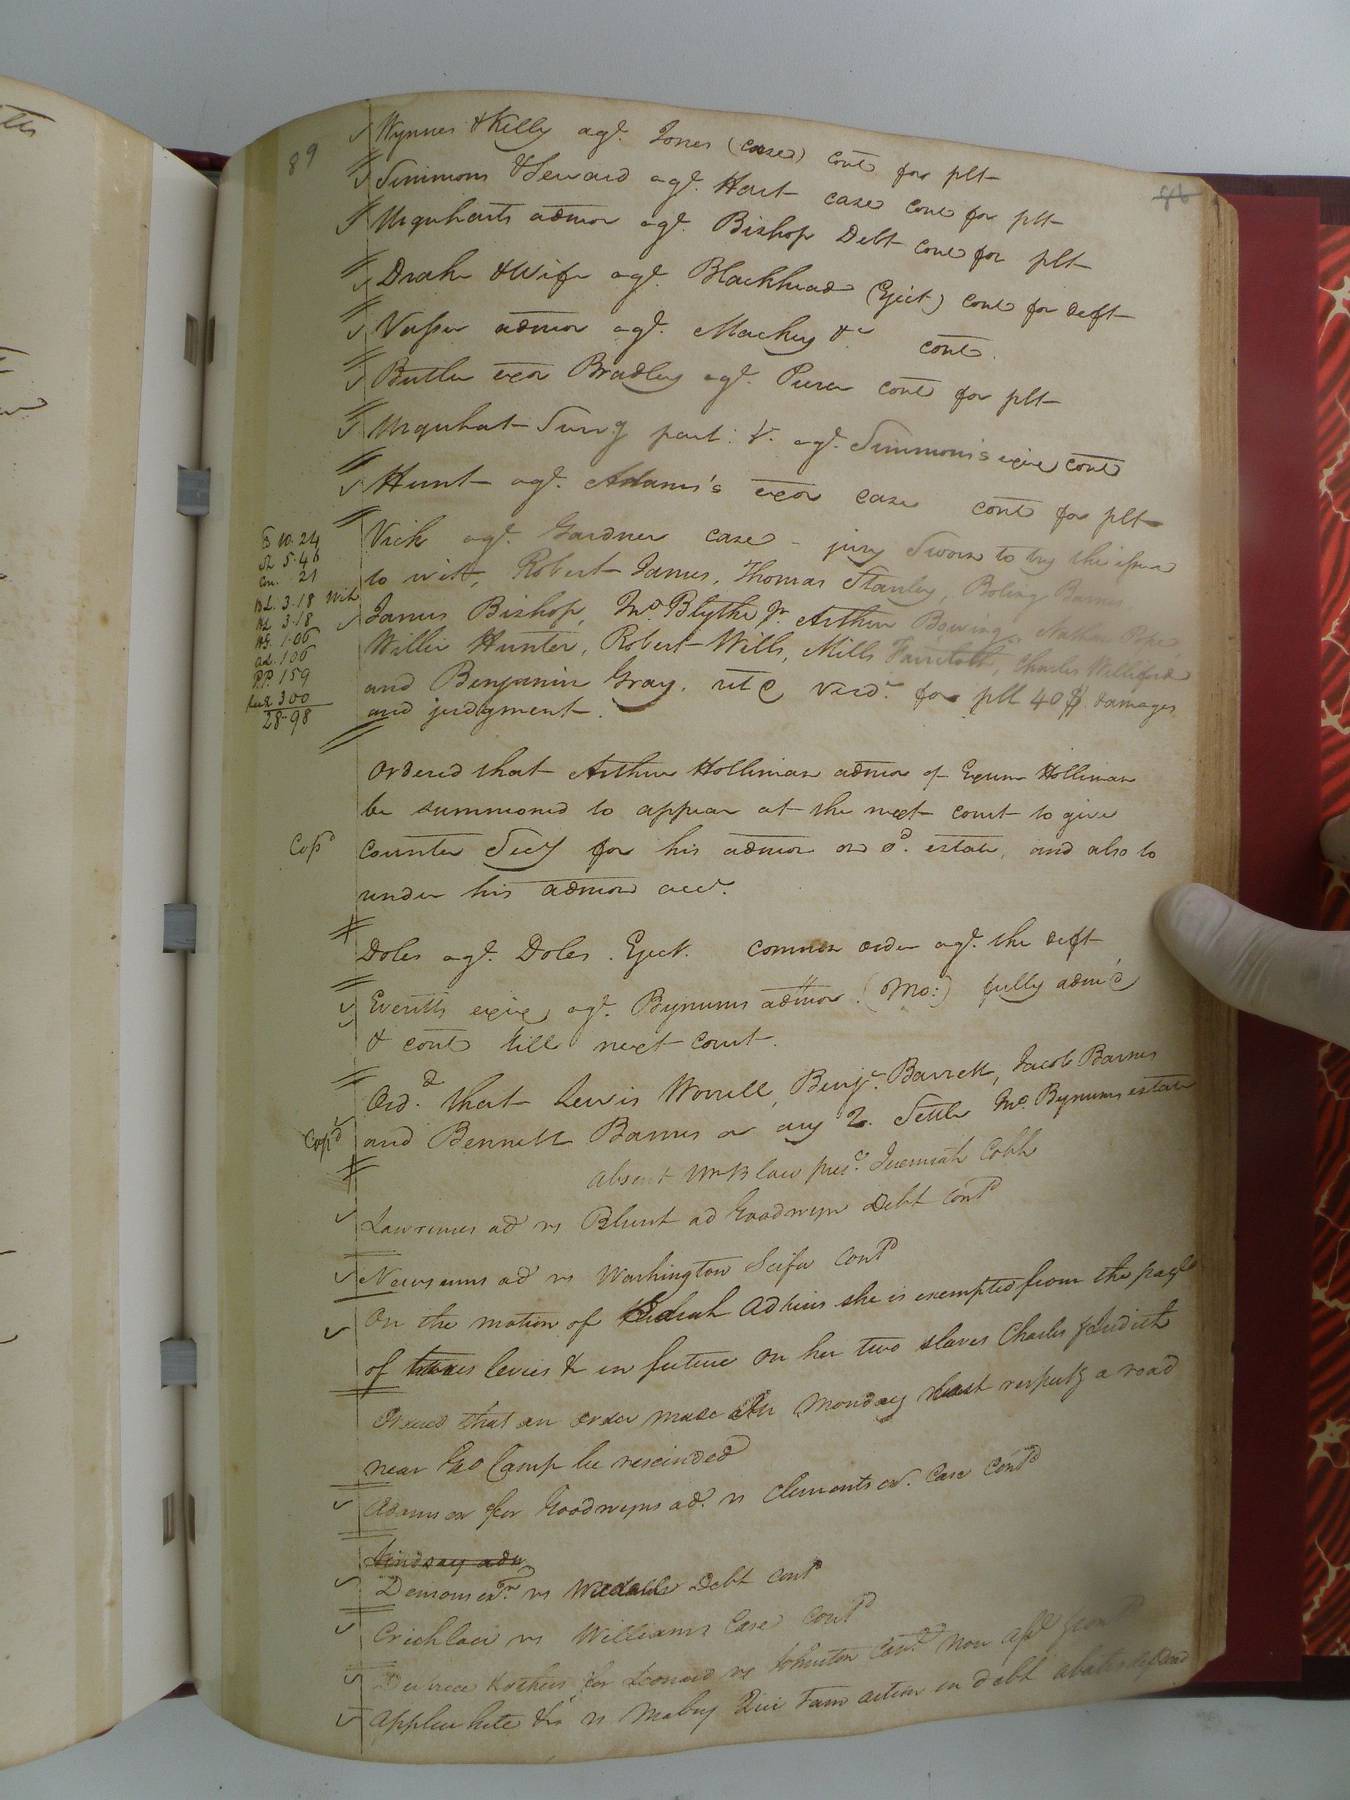 89
86
Wynnes & Kelly agt. Jones (case) cont for plt
Simmons & Seward agt. Hart case cont for plt
Urquharts admor agt. Bishop Debt cont for plt
Drake & Wife agt. Blackhead (Eject) cont for deft
Vasser admor agt. Mackey &c cont
Butler exor Bradley agt. cont for plt
Urquhat Survg part: &. agt. Simmons's exix cont
Hunt agt. Adams's exor case cont for plt
Vick agt. Gardner case - jury Sworn to try the issue
to witt, Robert James, Thomas Stanley, Boling Barnes
James Bishop, Jno Blythe Jr. Arthur Nathan Pope
Willie Hunter, Robert Wills, Mills Charles Williford
and Benjamin Gray. verd. for plt 40 $ damages
and judgment.
10.24
5.46
21
3.18
3.18
1.06
106
P.P. 159
300
28-98
Ordered that Arthur Holliman admor of Exum Holliman
be summoned to appear at the next court to give
Copd counter Secy for his admon on sd. estate, and also to
render his admon acct.
Doles agt. Doles. Eject. common order agt. the deft
exix agt. Bynums admor. (Mo:) fully admd
& cont till next court.
Ord. that Lewis Worrell, Benjn. Barrett, Jacob Barnes
Copd and Bennett Barnes or any 2. Settle Jno. Bynums estate
absent Wm Blow prest. Jeremiah Cobb
Lawrences ad vs Blunt ad Goodwyn Debt contd
Newsums ad vs Washington contd
On the motion of Adkins she is exempted from the paye
of levies & in future on her two slaves Charles & Judith
Ordered that an order made on Monday last respectg a road
near Camp be rescinded
Adams ex for Goodwyns ad. vs Clements ex. Case contd
Lindsay adr
exr. vs Debt contd
vs Williams Case contd
for Leonard vs Johnston
Applewhite &c vs Mabry Qui Tam action in debt